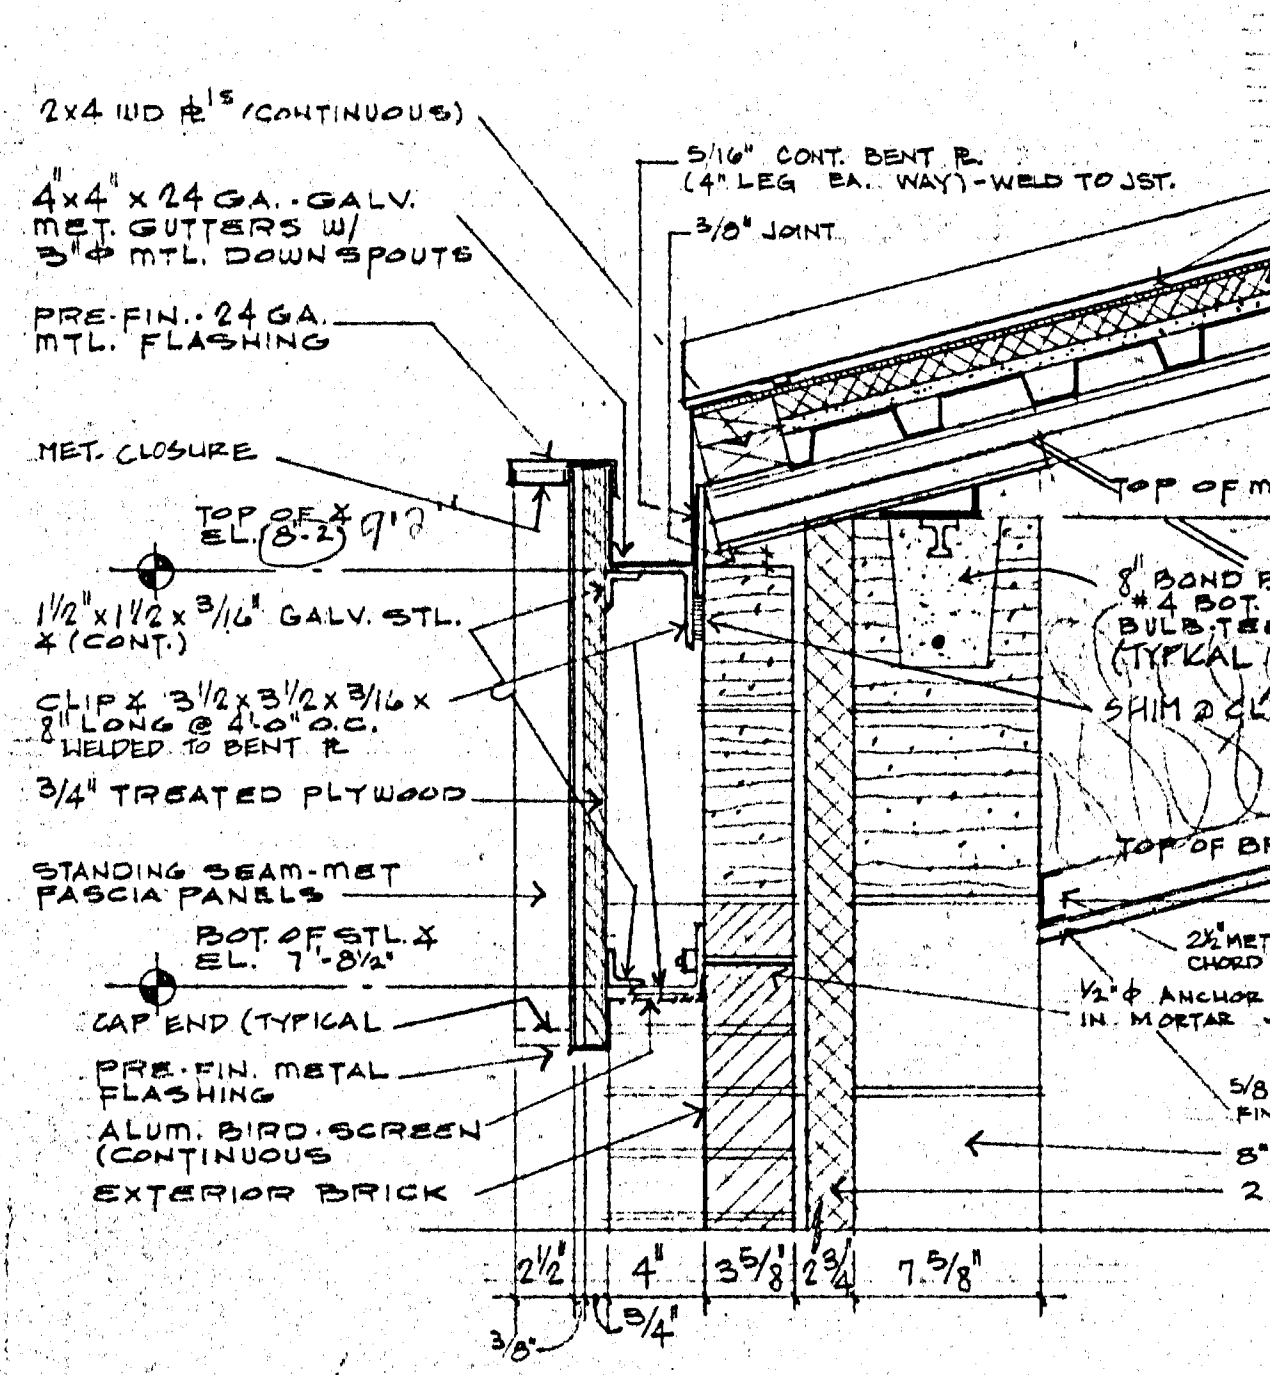 2x4 WD ℞'S (CONTINUOUS)
4"x4" x 24 GA. - GALV.
MET. GUTTERS W/
3"φ MTL. DOWNSPOUTS
PRE-FIN. - 24 GA.
MTL. FLASHING
MET. CLOSURE
TOP OF ∠
EL. (8-2) 9'2"
1 1/2" x 1 1/2 x 3/16" GALV. STL.
∠ (CONT.)
CLIP ∠ 3 1/2 x 3 1/2 x 3/16 x
8" LONG @ 4'-0" O.C.
WELDED TO BENT ℞
3/4" TREATED PLYWOOD
STANDING SEAM-MET
FASCIA PANELS
BOT. OF STL. ∠
EL. 7'-8 1/2"
CAP END (TYPICAL
PRE-FIN. METAL
FLASHING
ALUM. BIRD-SCREEN
(CONTINUOUS
EXTERIOR BRICK
5/16" CONT. BENT ℞.
(4" LEG EA. WAY) - WELD TO JST.
3/8" JOINT
TOP OF M
8" BOND B
#4 BOT.
BULB-TEE
(TYPICAL
SHIM @ CL
TOP OF BR
2 1/2" MET
CHORD
1/2" φ ANCHOR
IN MORTAR
5/8
FIN
8"
2
2 1/2" 4" 3 5/8" 2 3/4 7 5/8"
3/8" 3/4"